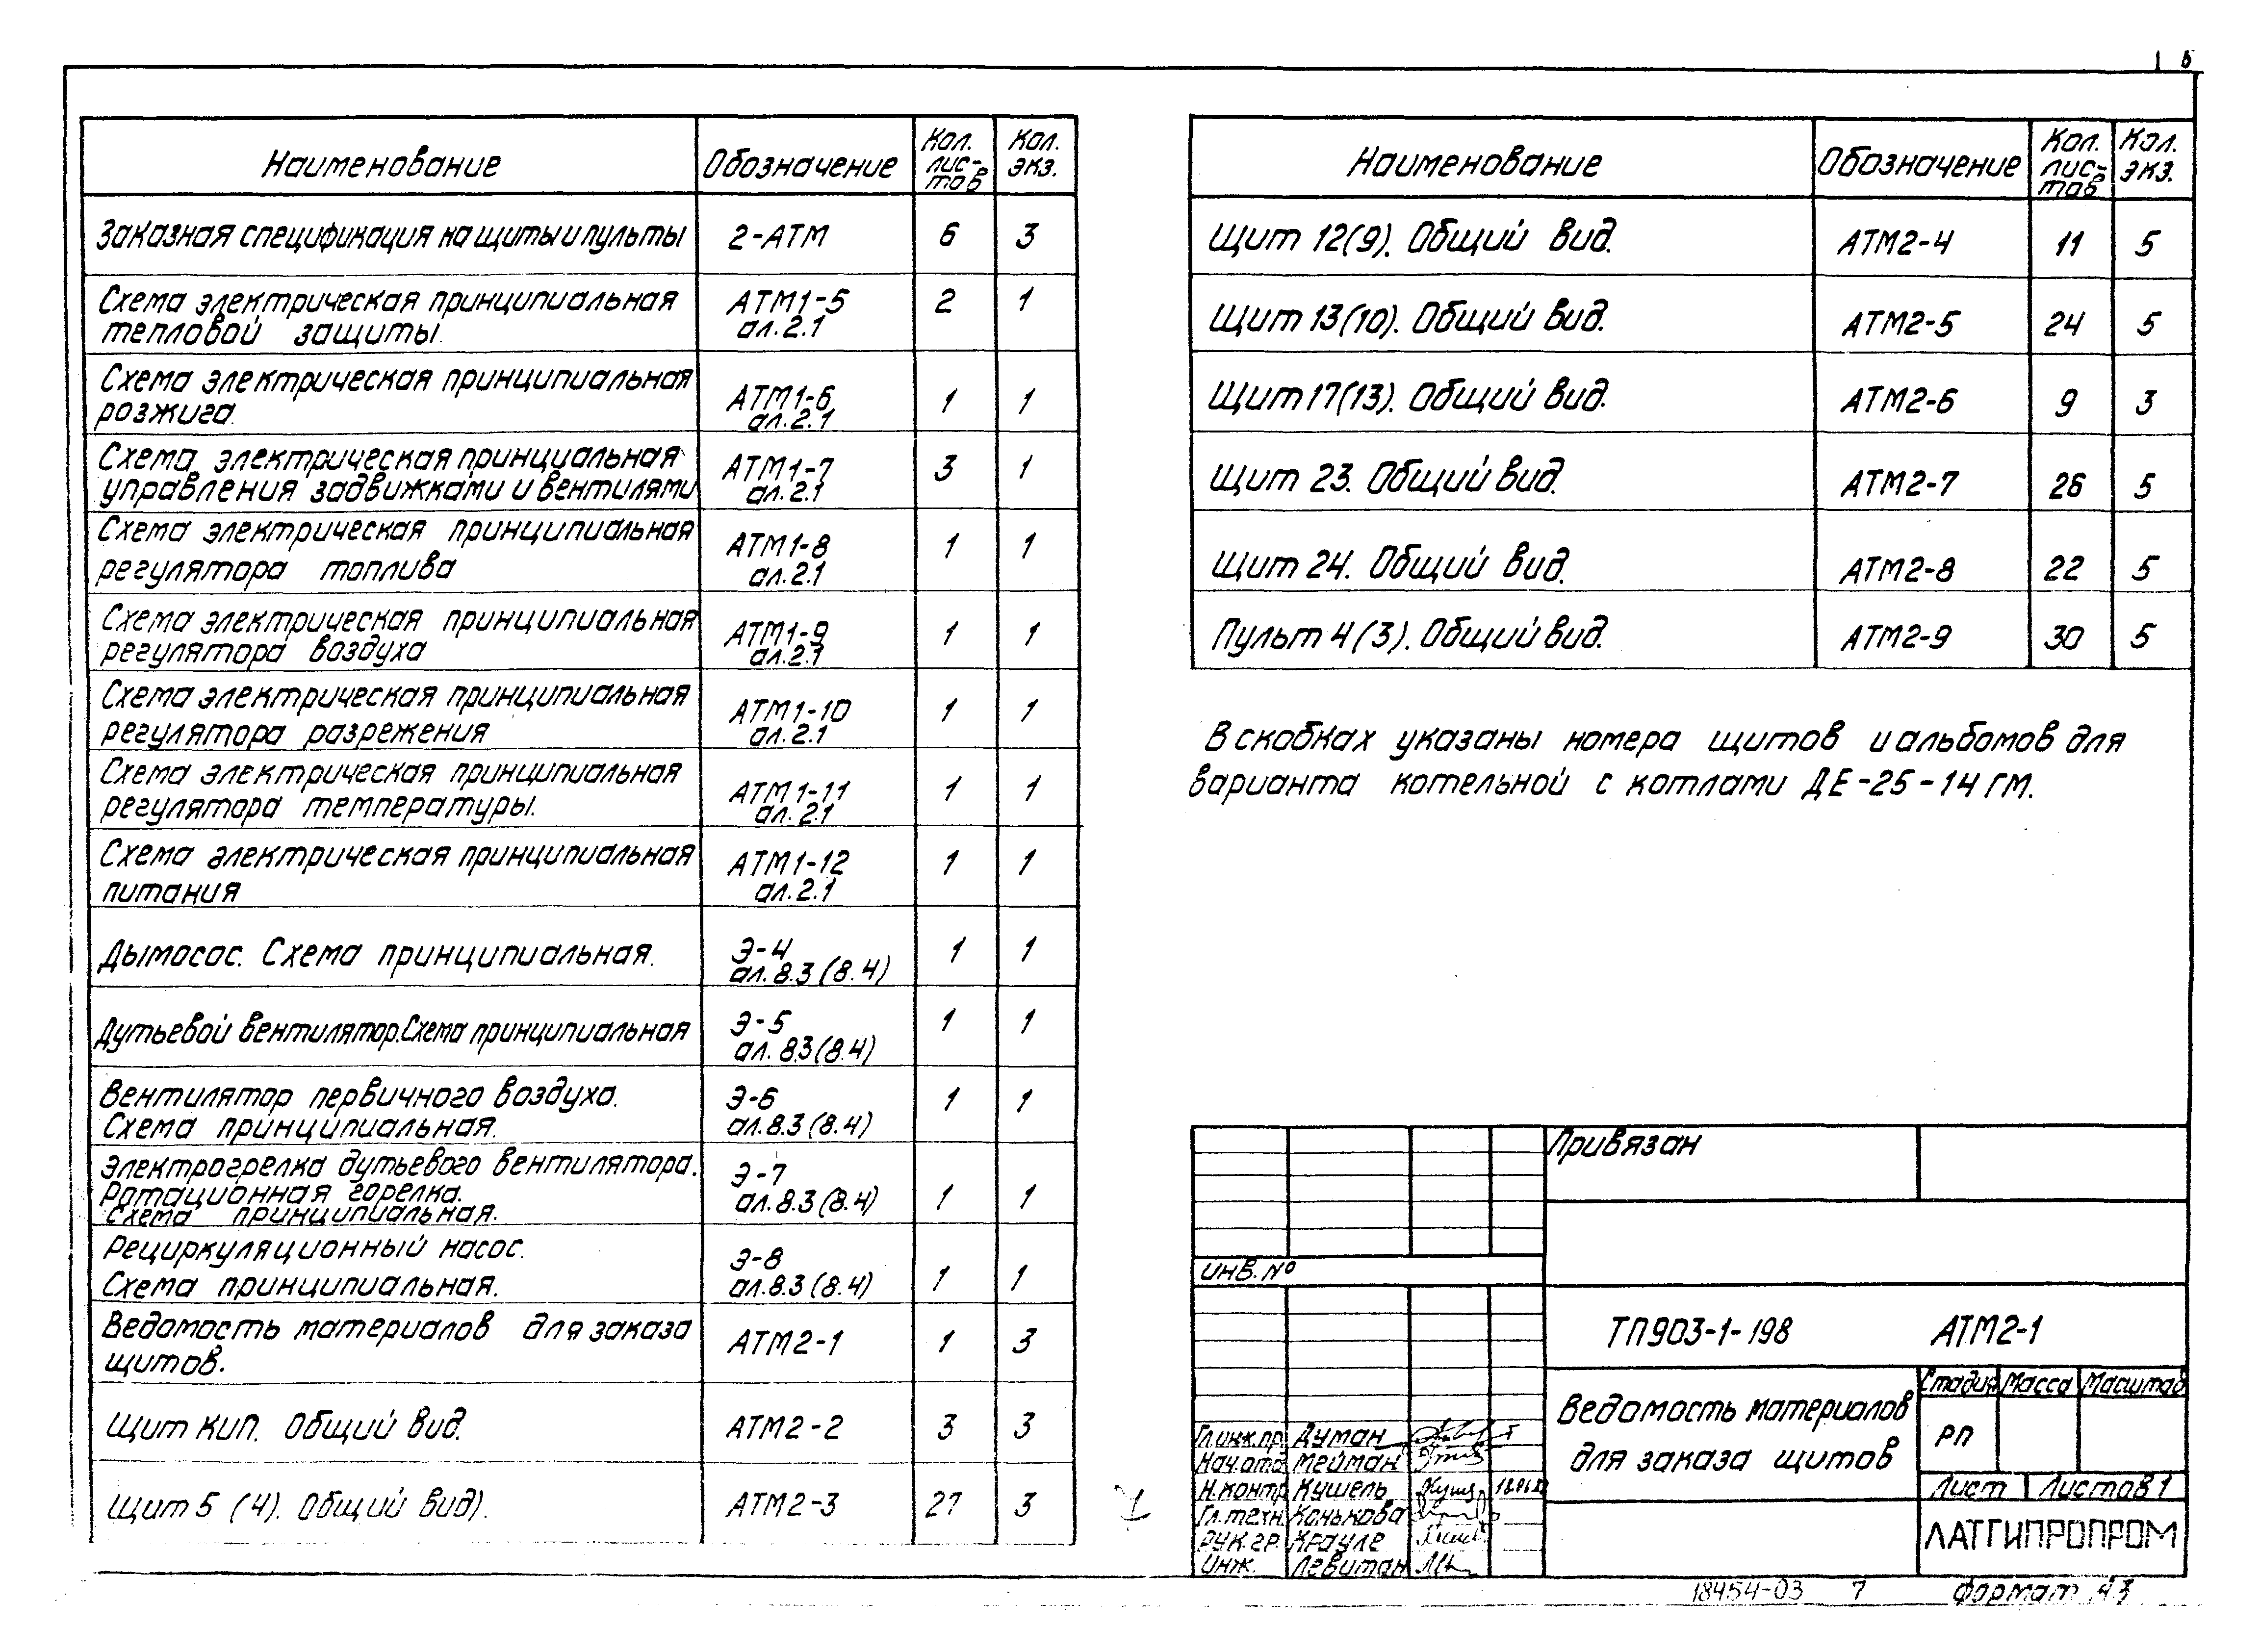 6
Наименование Обозначение Кол. лис-тов Кол. экз.
Заказная спецификация на щиты и пульты 2-АТМ 6 3
Схема электрическая принципиальная АТМ1-5 2 1
тепловой защиты. ал.2.1
Схема электрическая принципиальная АТМ1-6 1 1
розжига. ал.2.1
Схема электрическая принциальная АТМ1-7 3 1
управления задвижками и вентилями ал.2.1
Схема электрическая принципиальная АТМ1-8 1 1
регулятора топлива ал.2.1
Схема электрическая принципиальная АТМ1-9 1 1
регулятора воздуха ал.2.1
Схема электрическая принципиальная АТМ1-10 1 1
регулятора разрежения ал.2.1
Схема электрическая принципиальная АТМ1-11 1 1
регулятора температуры. ал.2.1
Схема электрическая принципиальная АТМ1-12 1 1
питания ал.2.1
Дымосос. Схема принципиальная. Э-4 1 1
ал.8.3(8.4)
Дутьевой вентилятор.Схема принципиальная Э-5 1 1
ал.8.3(8.4)
Вентилятор первичного воздуха. Э-6 1 1
Схема принципиальная. ал.8.3(8.4)
Электрогрелка дутьевого вентилятора. Э-7
Ротационная горелка. ал.8.3(8.4) 1 1
Схема принципиальная.
Рециркуляционный насос. Э-8
Схема принципиальная. ал.8.3(8.4) 1 1
Ведомость материалов для заказа АТМ2-1 1 3
щитов.
Щит КИП. Общий вид. АТМ2-2 3 3
Щит 5 (4). Общий вид). АТМ2-3 27 3
Наименование Обозначение Кол. лис-тов Кол. экз.
Щит 12(9). Общий вид. АТМ2-4 11 5
Щит 13(10). Общий вид. АТМ2-5 24 5
Щит 17(13). Общий вид. АТМ2-6 9 3
Щит 23. Общий вид. АТМ2-7 26 5
Щит 24. Общий вид. АТМ2-8 22 5
Пульт 4(3). Общий вид. АТМ2-9 30 5
В скобках указаны номера щитов и альбомов для
варианта котельной с котлами ДЕ-25-14ГМ.
Привязан
Инв.№
ТП903-1-198 АТМ2-1
Ведомость материалов
для заказа щитов
Стадия Масса Масштаб
РП
Лист Листов 1
ЛАТГИПРОПРОМ
Гл.инж.пр. Думан
Нач.отд. Мейман
Н.контр. Кушель
Гл.техн. Конькова
Рук.гр. Крауле
Инж. Левитан
18454-03 7 Формат А3